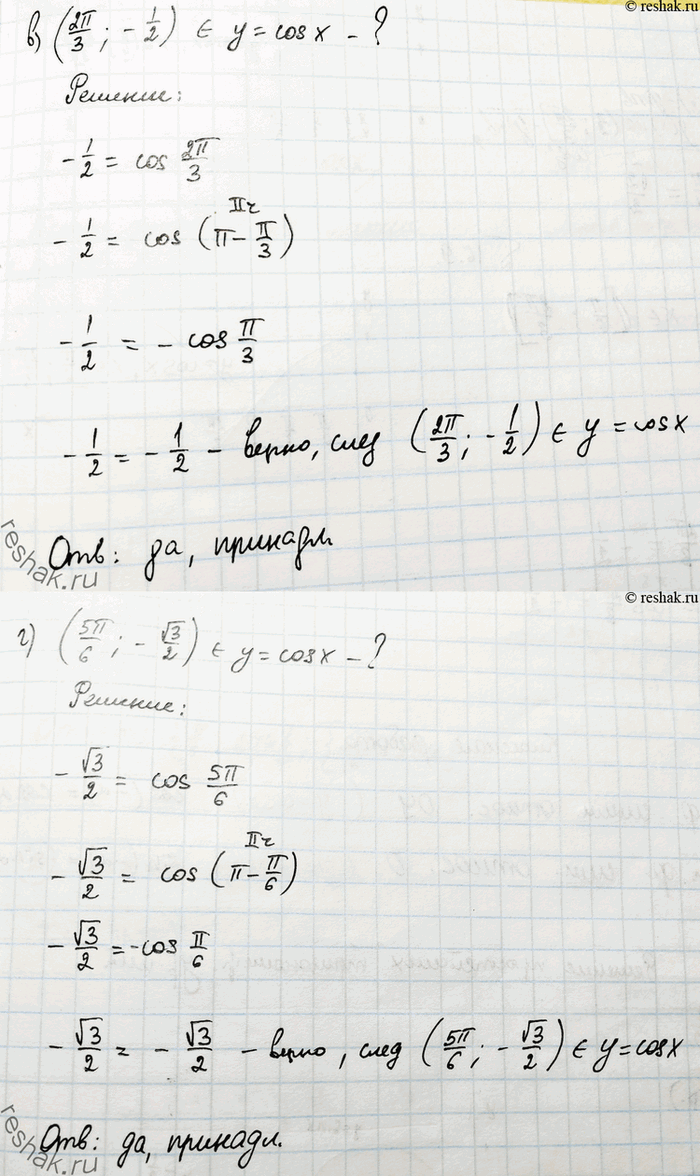 © reshak.ru
в) (2π/3 ; - 1/2) ∈ y = cos x - ?
Решение:
- 1/2 = cos 2π/3
IIч
- 1/2 = cos (π - π/3)
- 1/2 = - cos π/3
- 1/2 = - 1/2 - верно, след (2π/3 ; - 1/2) ∈ y = cos x
Отв: да, принадл.
reshak.ru
© reshak.ru
г) (5π/6 ; - √3/2) ∈ y = cos x - ?
Решение:
- √3/2 = cos 5π/6
IIч
- √3/2 = cos (π - π/6)
- √3/2 = - cos π/6
- √3/2 = - √3/2 - верно, след (5π/6 ; - √3/2) ∈ y = cos x
Отв: да, принадл.
reshak.ru